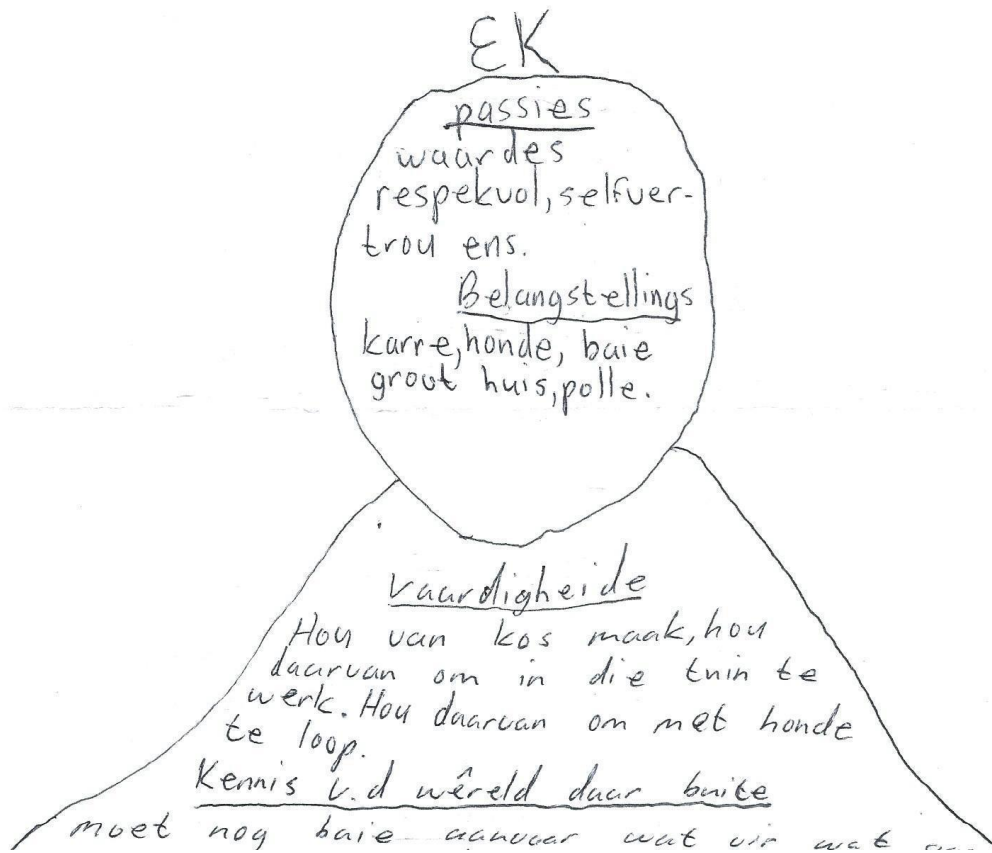 EK
passies
waardes
respekvol, selfver-
trou ens.
Belangstellings
karre, honde, baie
groot huis, polle.
Vaardigheide
Hou van kos maak, hou
daarvan om in die tuin te
werk. Hou daarvan om met honde
te loop.
Kennis v.d wêreld daar buite
moet nog baie aanvaar wat vir wat